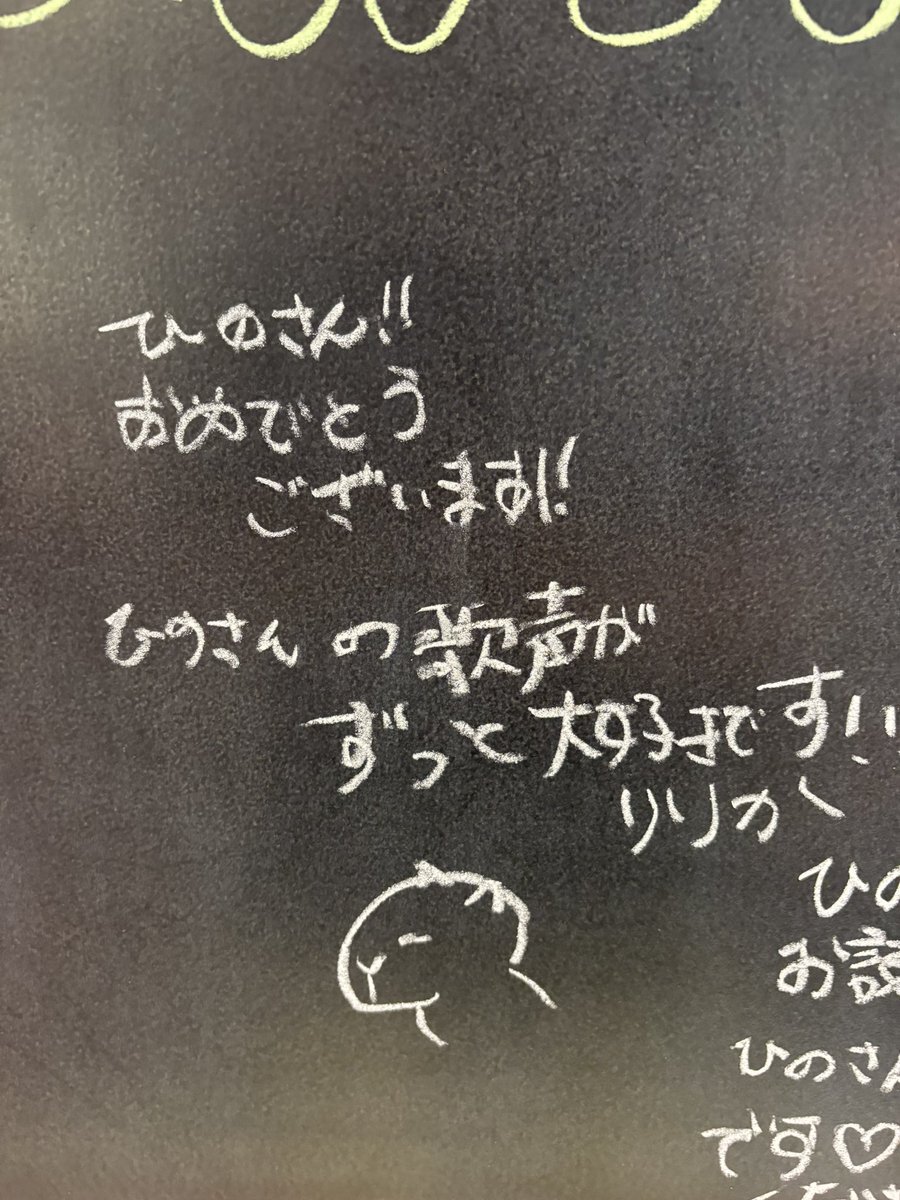 ひのさん!!
おめでとう
ございます!!
ひのさんの歌声が
ずっと大好きです!!
りりか
ひの
お誕
ひのさん
です♡